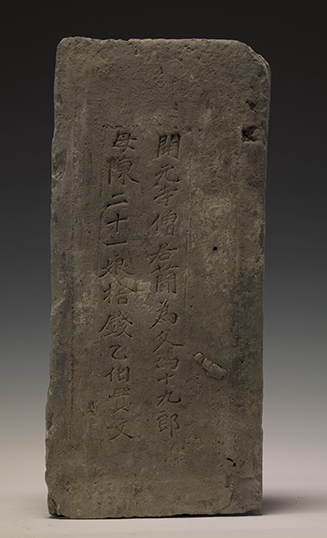 開元寺僧右蕳為父劉十九郎
母陳二十一娘捨錢乙伯貫文